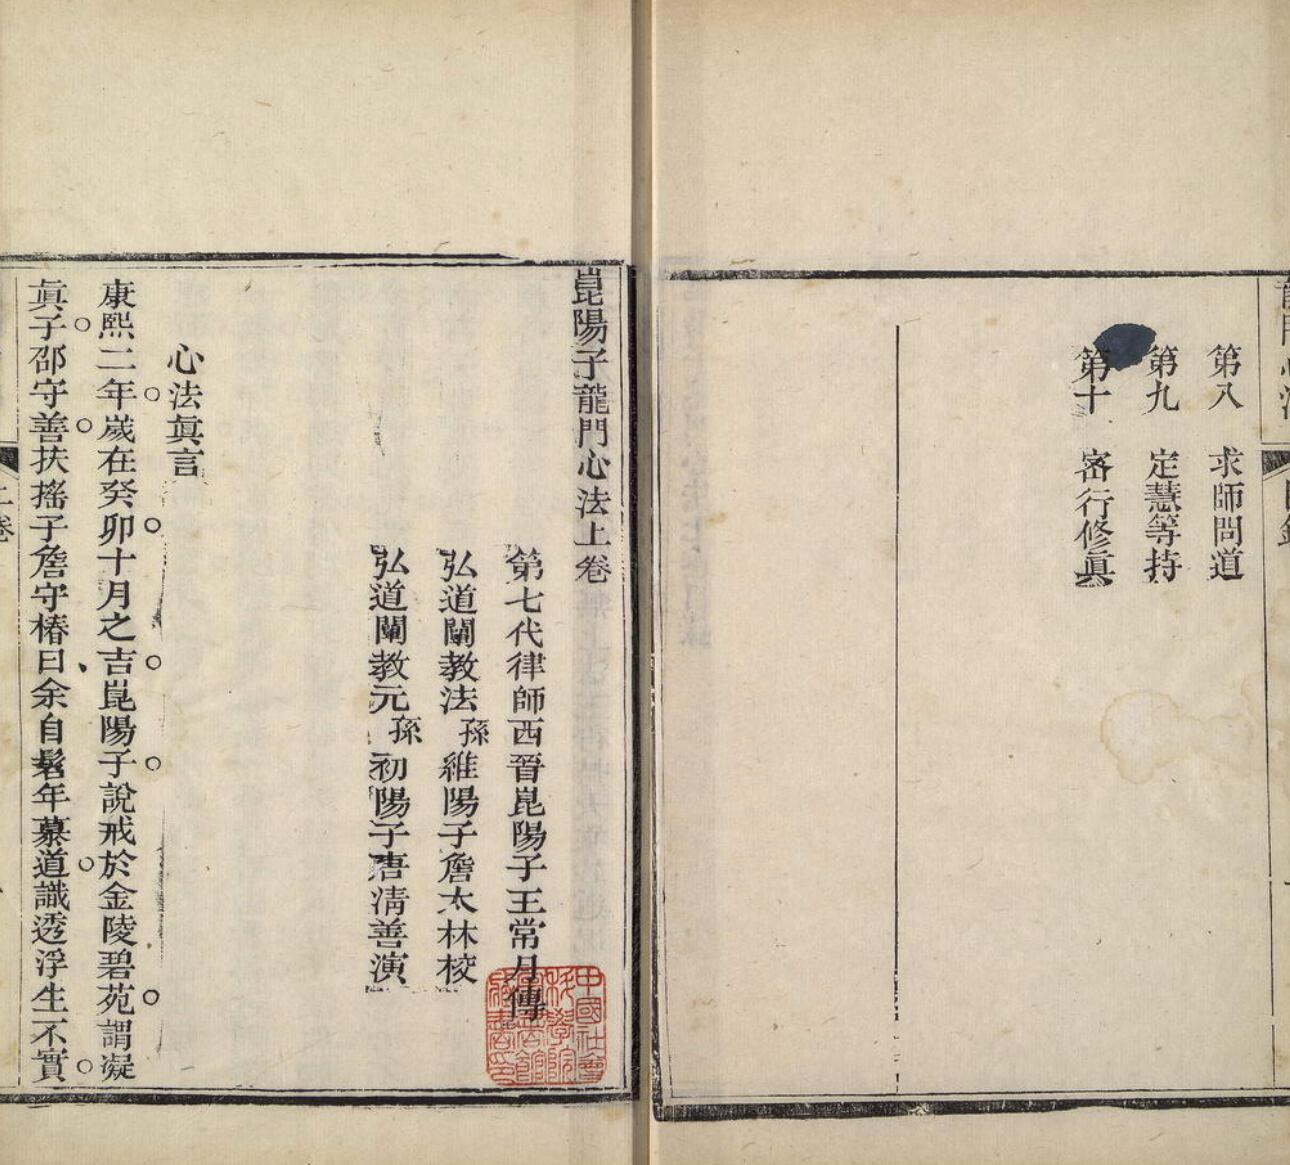 第八 求師問道
第九 定慧等持
第十 密行修眞
崑陽子龍門心法上卷
第七代律師西晉崑陽子王常月傳
弘道闡教法孫維陽子詹太林校
弘道闡教元孫初陽子唐淸善演
心法眞言
康熙二年歲在癸卯十月之吉崑陽子說戒於金陵碧苑謂凝
眞子邵守善扶搖子詹守椿曰余自髫年慕道識透浮生不實
中國社會科學院